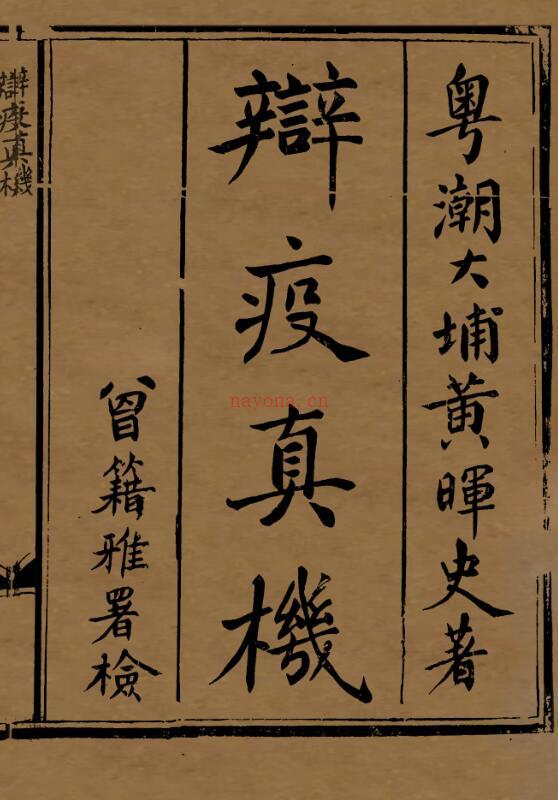 粵潮大埔黃暉史著
辯疫真機
曾籍雅署檢
辯疫真機
nayona.cn